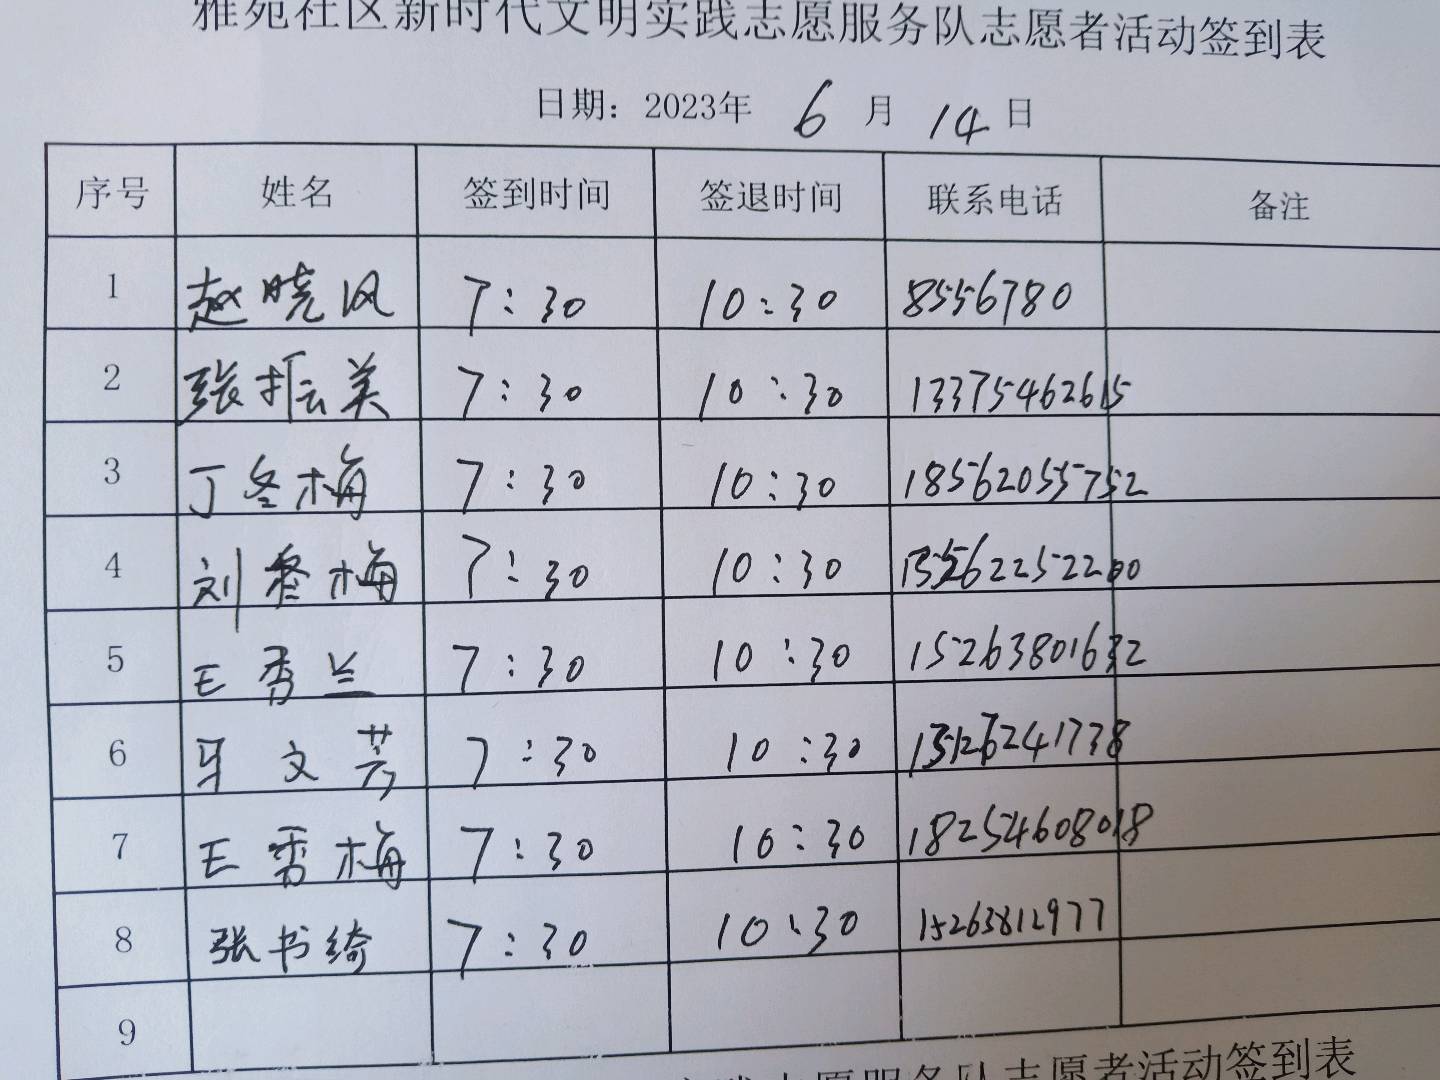 雅苑社区新时代文明实践志愿服务队志愿者活动签到表
日期：2023年 6 月 14 日
序号 姓名 签到时间 签退时间 联系电话 备注
1 赵晓风 7:30 10:30 8556780
2 张振美 7:30 10:30 13375462615
3 丁冬梅 7:30 10:30 18562055752
4 刘冬梅 7:30 10:30
5 王秀兰 7:30 10:30 15263801632
6 牙文芳 7:30 10:30
7 王雪梅 7:30 10:30 18254608018
8 张书绮 7:30 10:30 15263812977
9
志愿服务队志愿者活动签到表